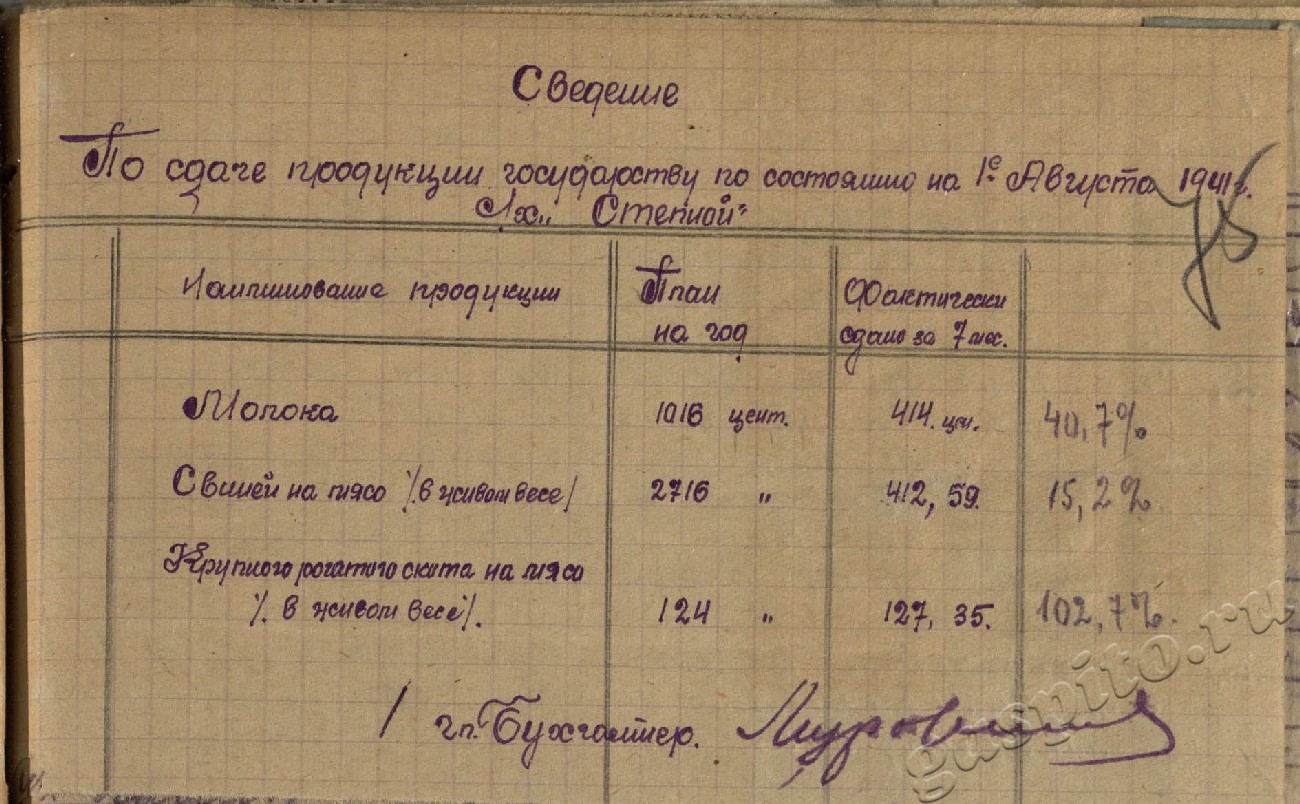 Сведение
По сдаче продукции государству по состоянию на 1е Августа 1941 г.
с/х „Степной"
Наименование продукции План Фактически
на год сдано за 7 мес.
Молока 1016 цент. 414 цн. 40,7%
Свиней на мясо /.в живом весе/ 2716 „ 412, 59. 15,2%
Крупного рогатого скота на мясо
/. в живом весе/. 124 „ 127, 35. 102,7%.
/ гл. Бухгалтер.
gaspito.ru